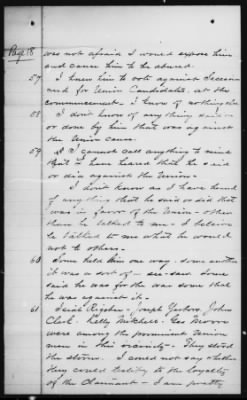 Page 8
was not afraid I would expose him
and cause him to be abused.
57 I knew him to vote against Secession
and for Union Candidates. at the
commencement. I know of nothing else
58 I don't know of any thing said
or done by him that was against
the Union cause.
59 I cannot call anything to mind
that I have heard that he said
or did against the Union.
I don't know as I have heard
of any thing that he said or did that
was in favor of the Union - other
than he talked to me - I believe
he talked to me what he would
not to others.
60 Some held him one way - some another
it was a sort of - see-saw. Some
said he was for the war some that
he was against it.
61 Joseph John
Clark. Kelly Mitchell. Geo Moore
were among the prominent Union
men in this vicinity - They stood
the storm. I could not say whether
they could testify to the loyalty
of the Claimant - I am pretty